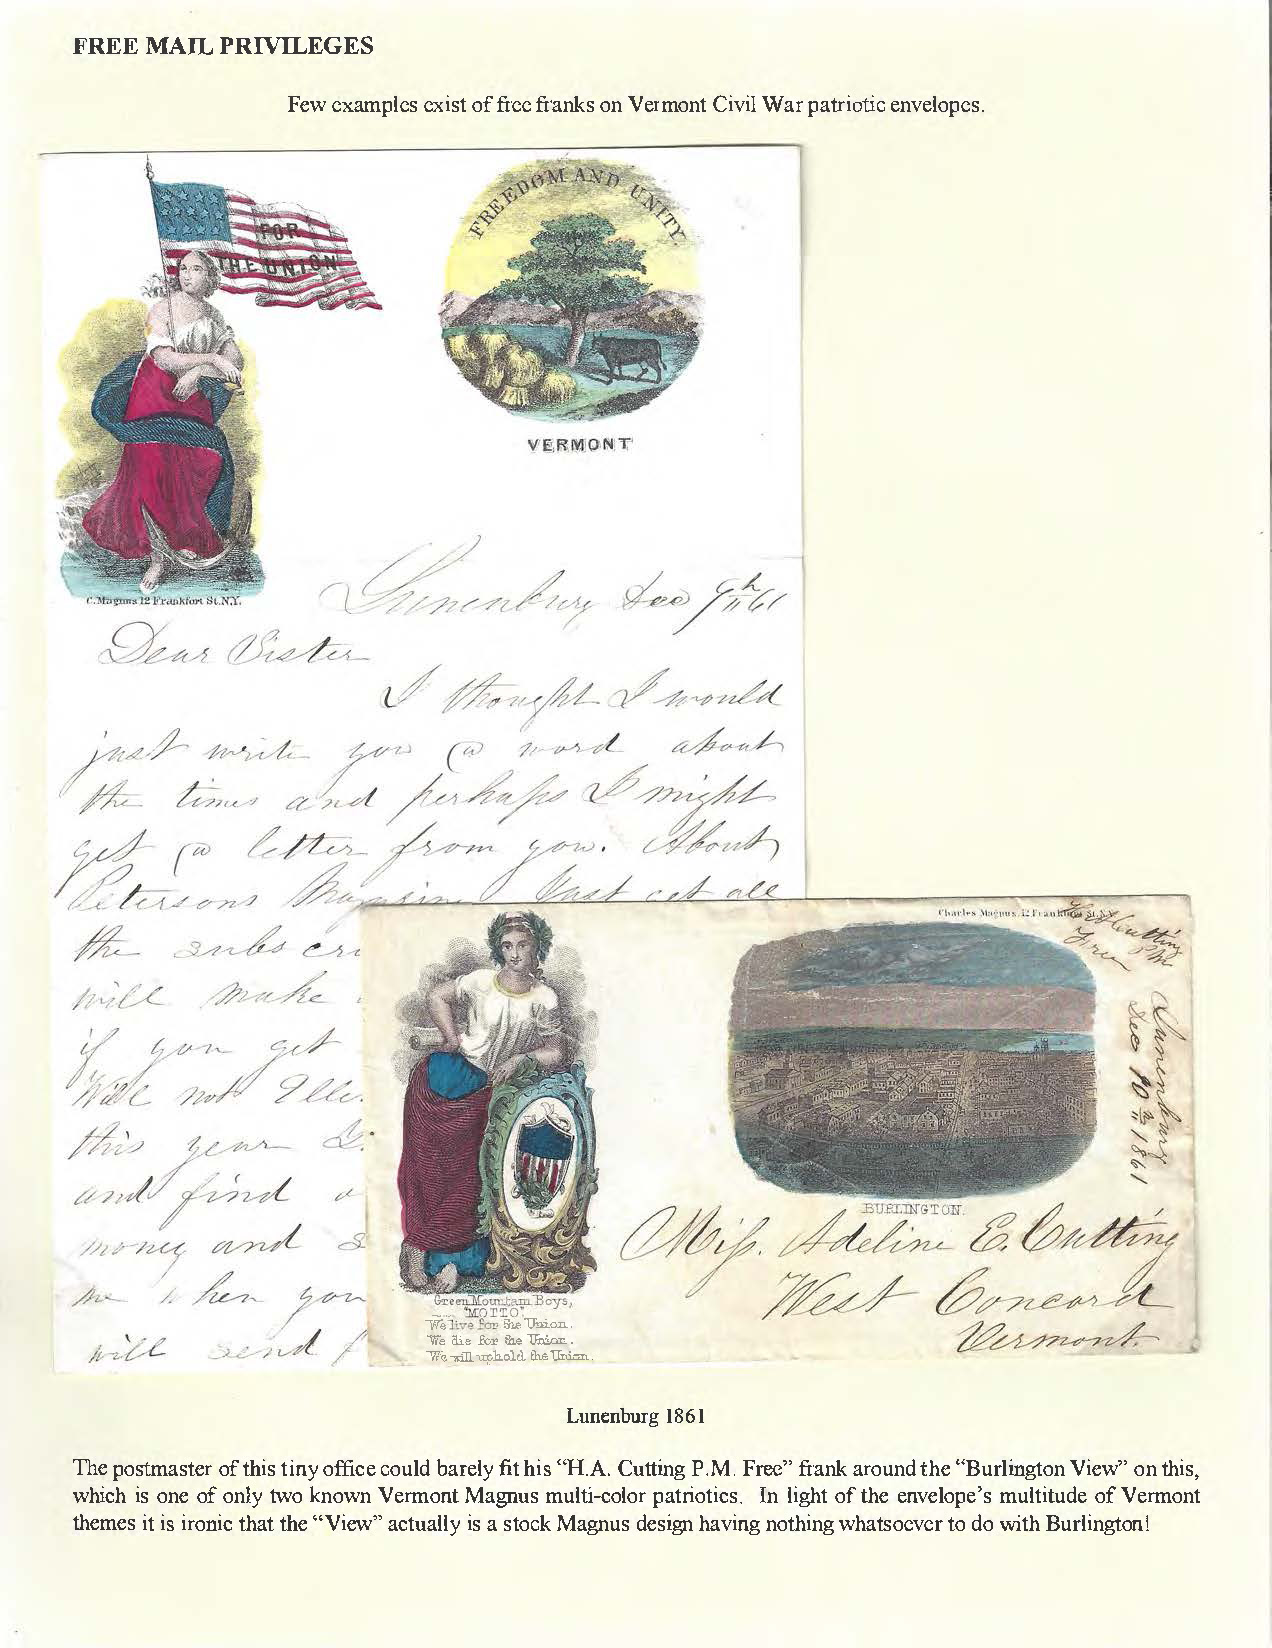 FREE MAIL PRIVILEGES
Few examples exist of free franks on Vermont Civil War patriotic envelopes.
FOR
THE UNION
FREEDOM AND UNITY.
VERMONT
C. Magnus 12 Frankfort St. N.Y.
Lunenburg Dec 9th 61
Dear Sister
I thought I would
just write you a word about
the times and perhaps I might
get a letter from you. About
Petersons Magazine Just get all
the subscri
will make
if you get
Will not Elle
this year
and find
money and
me when you
will send
Charles Magnus, 12 Frankfort St. N.Y.
H.A. Cutting
P.M.
Free
Lunenburg
Dec 10th 1861
BURLINGTON.
Miss. Adeline E. Cutting
West Concord
Vermont.
Green Mountain Boys,
"MOTTO"
We live for the Union.
We die for the Union.
We will uphold the Union.
Lunenburg 1861
The postmaster of this tiny office could barely fit his “H.A. Cutting P.M. Free” frank around the “Burlington View” on this,
which is one of only two known Vermont Magnus multi-color patriotics. In light of the envelope’s multitude of Vermont
themes it is ironic that the “View” actually is a stock Magnus design having nothing whatsoever to do with Burlington!